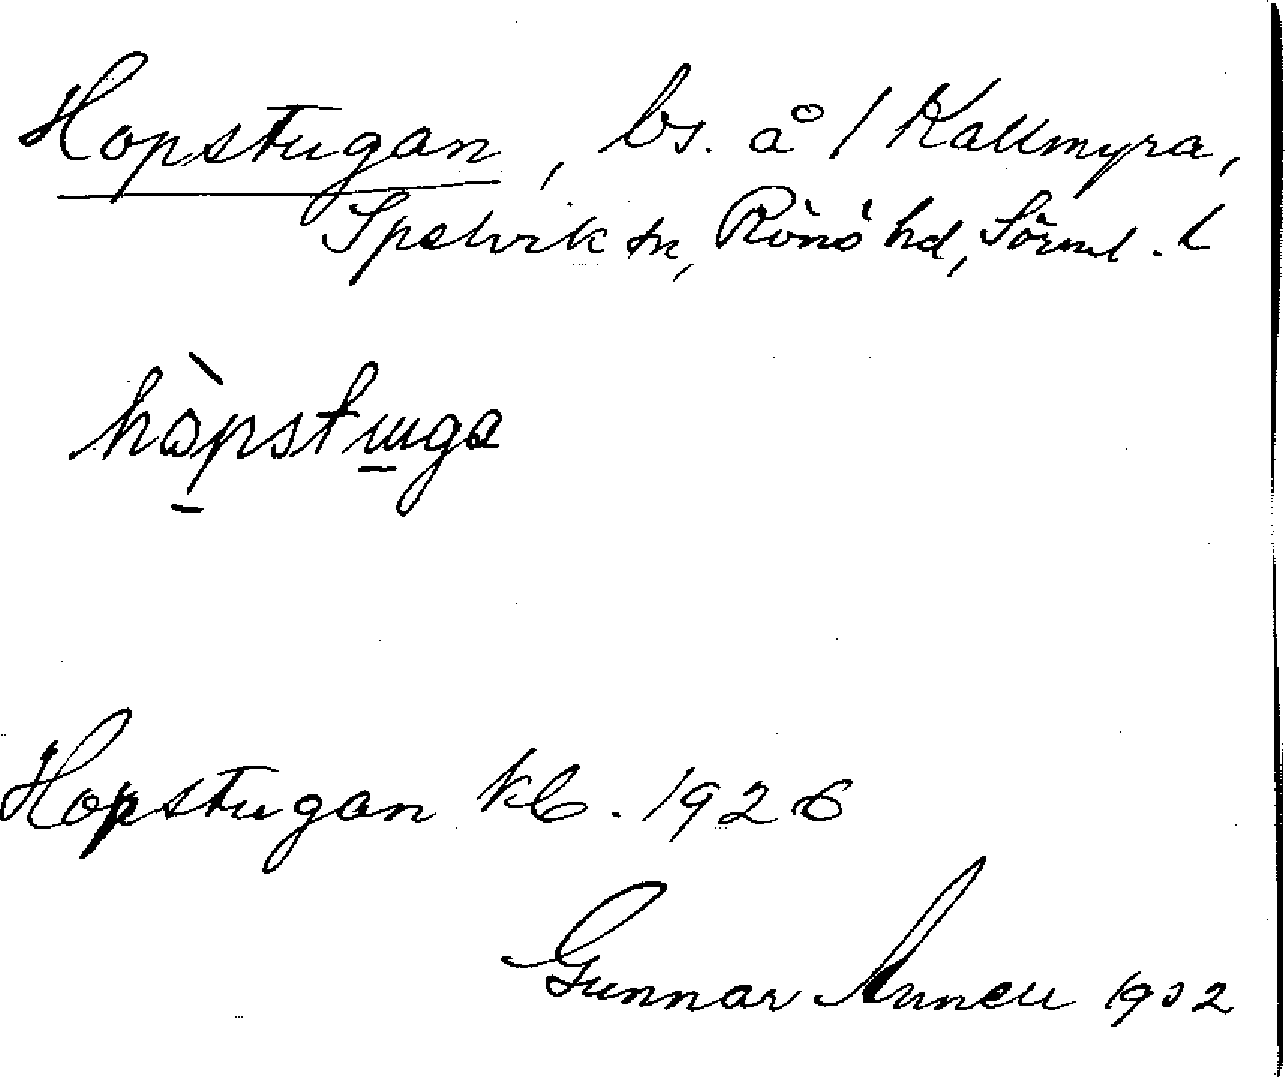 Hopstugan, bs. å / Kallmyra,
Spelvik sn, Rönö hd, Sörml. l
hòpstuga
Hopstugan kb. 1926
Gunnar Annell 1932